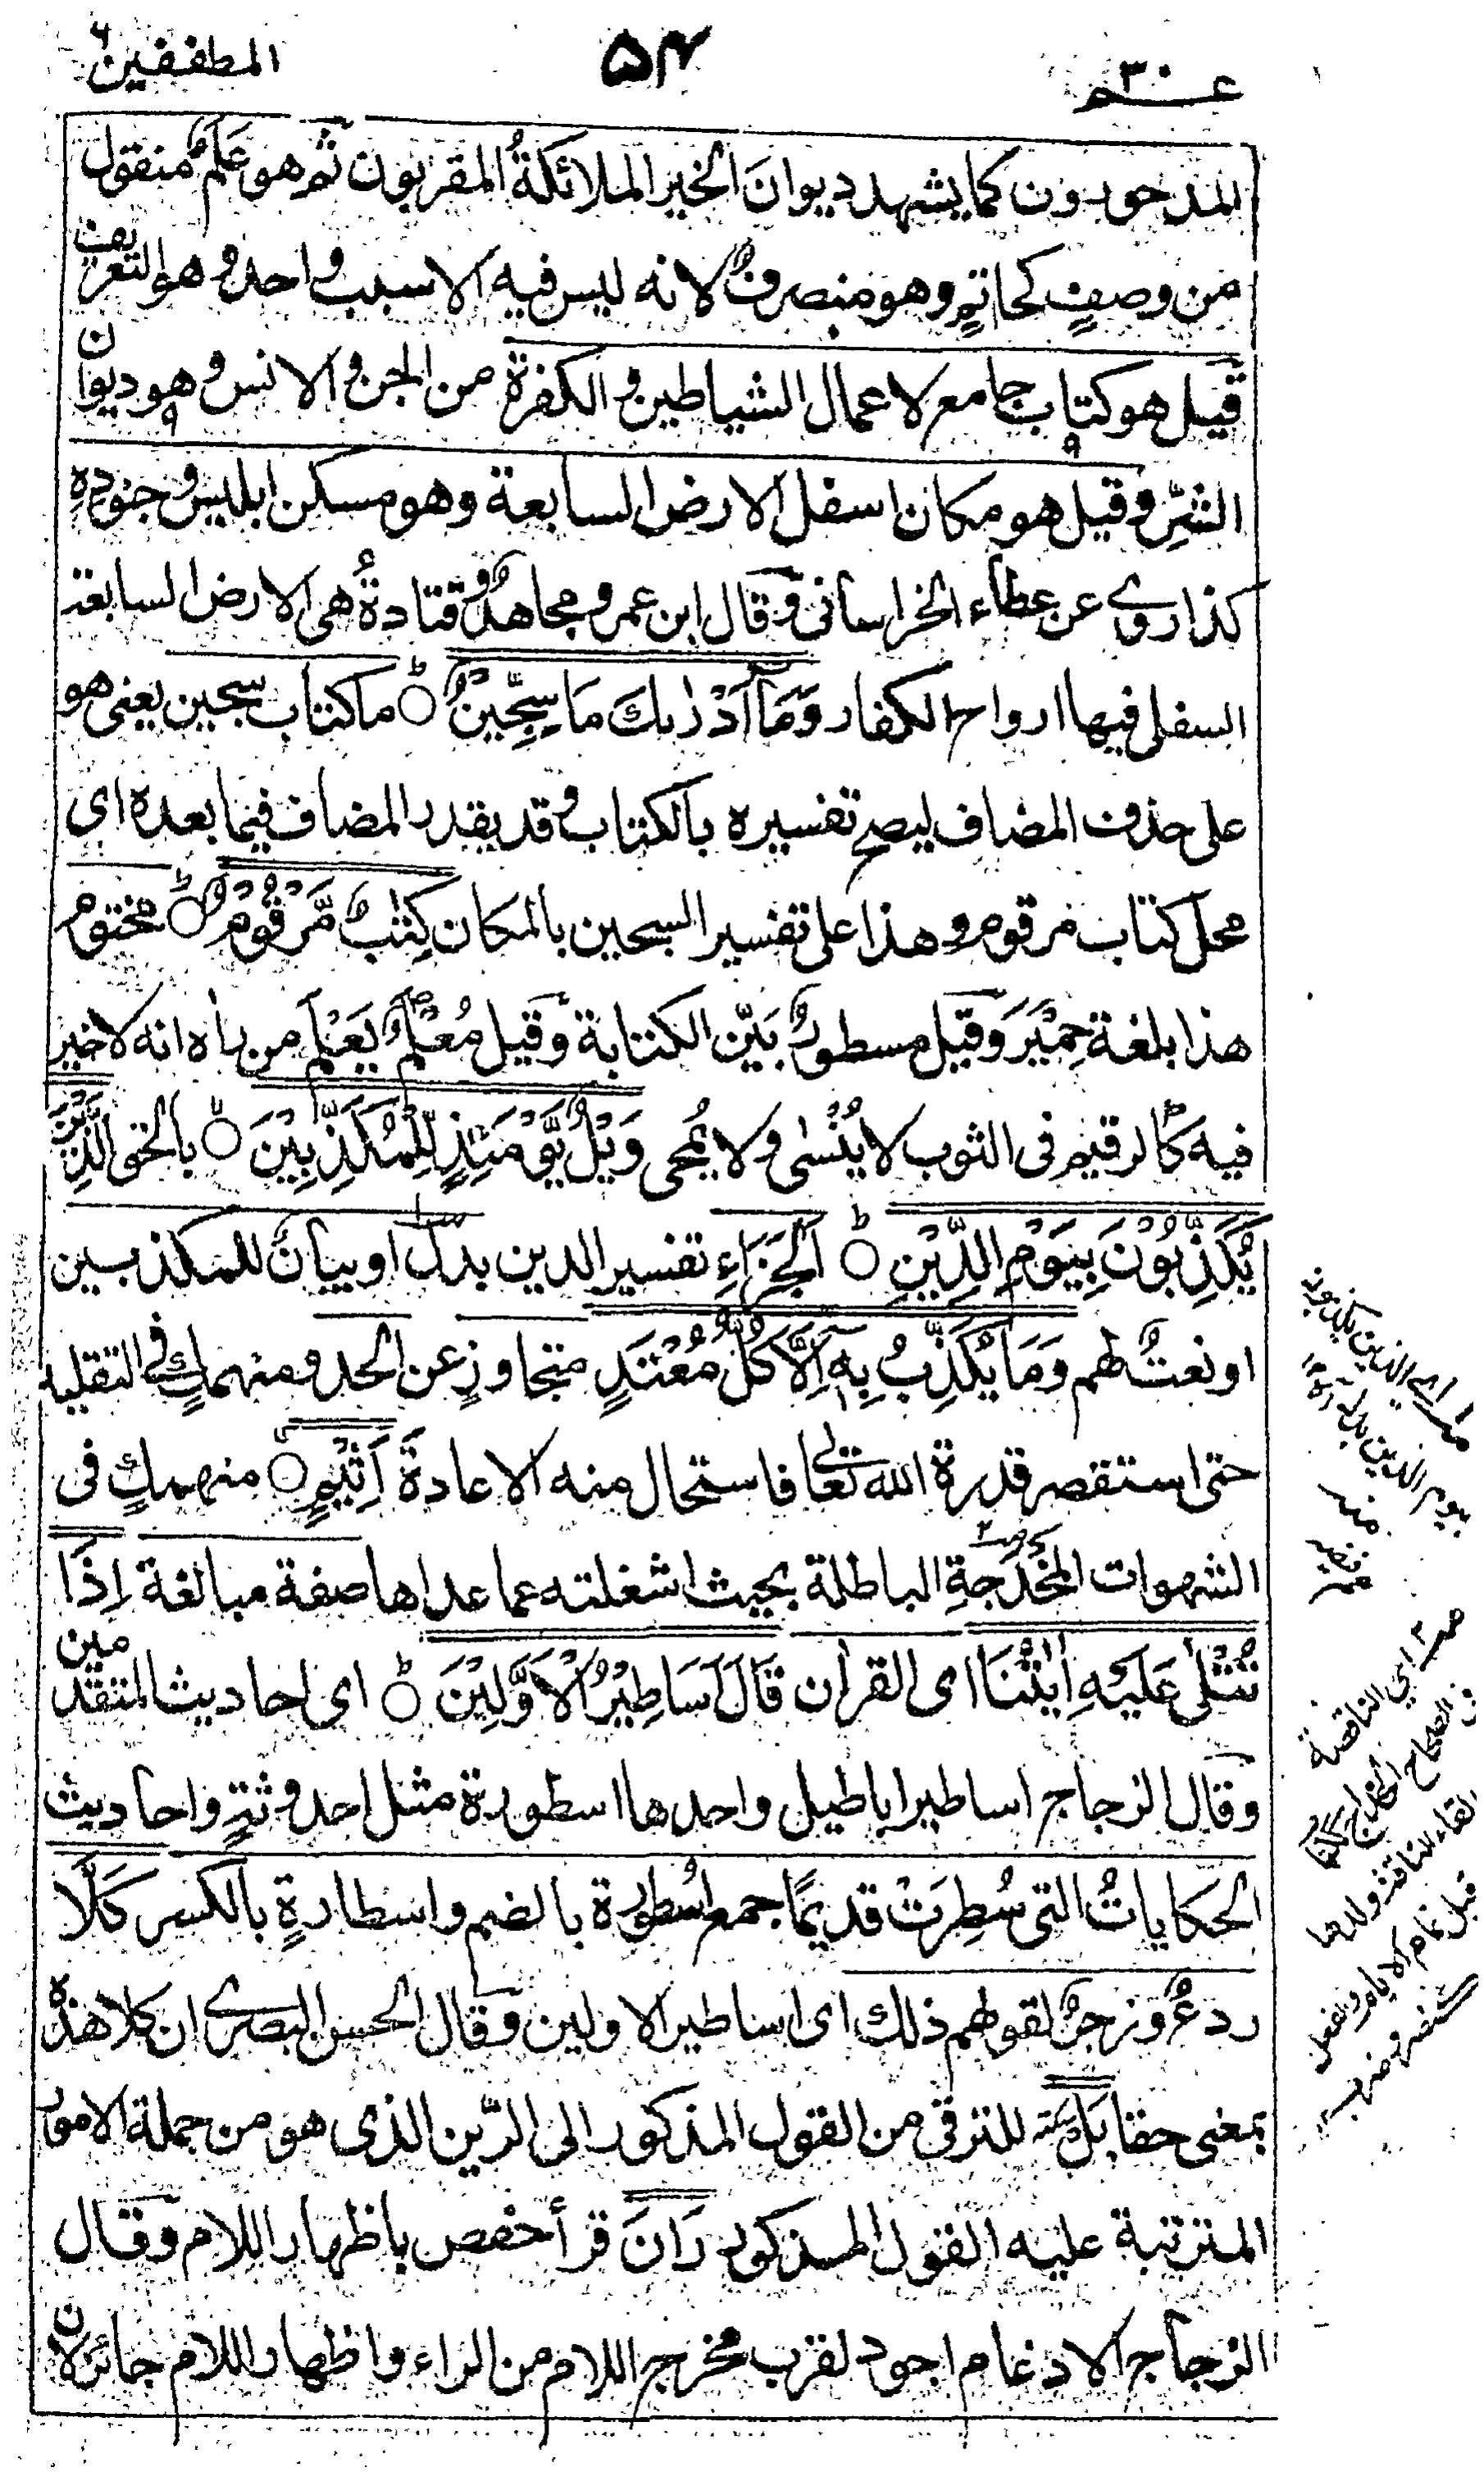 عــم ٣٠
٥٤
المطففين
المدحورون كما يشهد ديوانَ الخير الملائكةُ المقربون ثم هو عَلَمٌ منقول
من وصفٍ كحاتمٍ وهو منصرفٌ لانه ليس فيه الا سبب واحد وهو التعريف
قيل هو كتاب جامع لاعمال الشياطين والكفرة من الجن والانس وهو ديوان
الشرِّ وقيل هو مكان اسفل الارض السابعة وهو مسكن ابليس وجنودهِ
كذا روي عن عطاء الخراسانى وقال ابن عمر ومجاهدٌ وقتادةُ هى الارض السابعة
السفلى فيها ارواح الكفار وَمَآ اَدْرٰىكَ مَا سِجِّيْنٌ ما كتاب سجين يعنى هو
على حذف المضاف ليصح تفسيره بالكتاب وقد يقدر المضاف فيما بعده اى
محل كتاب مرقوم وهذا على تفسير السجين بالمكان كِتٰبٌ مَّرْقُوْمٌ مختوم
هذا بلغة حِمْيَرَ وقيل مسطورٌ بَيّن الكتابة وقيل مُعْلَمٌ يَعْلَم من راٰه انه لا خير
فيه كالرقيم فى الثوب لا يُنْسٰى ولا يُمحى وَيْلٌ يَّوْمَئِذٍ لِّلْمُكَذِّبِيْنَ بالحق الَّذِيْنَ
يُكَذِّبُوْنَ بِيَوْمِ الدِّيْنِ الجَزَاءِ تفسير الدين بدلٌ او بيانٌ للمكذبين
او نعتٌ لهم وَمَا يُكَذِّبُ بِهٖٓ اِلَّا كُلُّ مُعْتَدٍ متجاوزٍ عن الحد ومنهمكٍ فى التقليد
حتى استقصر قدرة الله تعالى فاستحال منه الاعادةَ اَثِيْمٍ منهمكٍ فى
الشهوات المُخْدَجَةِ الباطلة بحيث اشغلته عما عداها صفة مبالغة اِذَا
تُتْلٰى عَلَيْهِ اٰيٰتُنَا اى القراٰن قَالَ اَسَاطِيْرُ الْاَوَّلِيْنَ اى احاديث المتقدمين
وقال الزجاج اساطير اباطيل واحدها اسطورة مثل احدوثةٍ واحاديث
الحكاياتُ التى سُطِرَتْ قديمًا جمع اُسْطُورة بالضم واسطارةٍ بالكسر كَلَّا
ردعٌ وزجرٌ لقولهم ذلك اى اساطير الاولين وقال الحسن البصرى ان كلا هذه
بمعنى حقا بَلْ للترقى من القول المذكور الى الرَّين الذى هو من جملة الامور
المترتبة عليه القول المذكور رَانَ قرأ حفص باظهار اللام وقال
الزجاج الادغام اجود لقرب مخرج اللام من الراء واظهار اللام جائز لان
اي الذين يكذبون
بيوم الدين بدل
منه
اي الناقصة
الصحاح الخداج
القاء الناقة ولدها
قبل تمام الايام